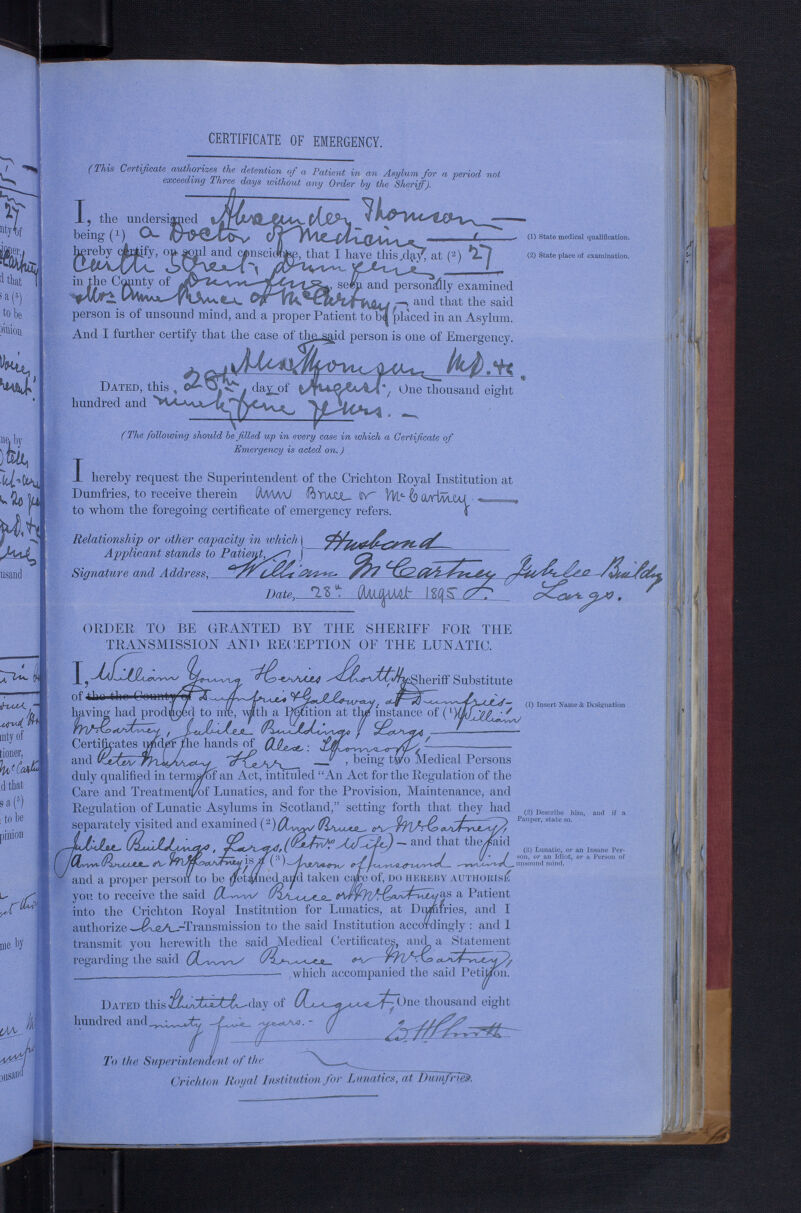 CERTIFICATE OF EMERGENCY.
(This Certificate authorizes the detention of a Patient in an Asylum for a period not
exceeding Three days without any Order by the Sheriff).
I, the undersigned Alexander Thomson
being (1) a Doctor of Medicine
hereby certify, on soul and conscience, that I have this day, at (2) 27
Castle Street, Dumfries
in the County of Dumfries, seen and personally examined
Mrs Anne Bruce or McCartney, and that the said
person is of unsound mind, and a proper Patient to be placed in an Asylum.
And I further certify that the case of the said person is one of Emergency.
Alex Thomson M.D. &c.
DATED, this 28th day of August, One thousand eight
hundred and ninety five years.
(The following should be filled up in every case in which a Certificate of
Emergency is acted on.)
I hereby request the Superintendent of the Crichton Royal Institution at
Dumfries, to receive therein Ann Bruce or McCartney
to whom the foregoing certificate of emergency refers.
Relationship or other capacity in which
Applicant stands to Patient, } Husband
Signature and Address, William McCartney Jubilee Buildg
Date, 28th August 1895 Largs.
ORDER TO BE GRANTED BY THE SHERIFF FOR THE
TRANSMISSION AND RECEPTION OF THE LUNATIC.
I, William Young Herries Shortt, Hy Sheriff Substitute
of the the County of Dumfries & Galloway, at Dumfries
having had produced to me, with a Petition at the instance of (1) William
McCartney, Jubilee Buildings, Largs,
Certificates under the hands of Alex: Thomson
and Peter Murray Kerr, being two Medical Persons
duly qualified in terms of an Act, intituled "An Act for the Regulation of the
Care and Treatment of Lunatics, and for the Provision, Maintenance, and
Regulation of Lunatic Asylums in Scotland," setting forth that they had
separately visited and examined (2) Ann Bruce or McCartney,
Jubilee Buildings, Largs, (Petnrs Wife) — and that the said
Ann Bruce or McCartney is a (3) person of unsound mind
and a proper person to be detained and taken care of, DO HEREBY AUTHORISE
you to receive the said Ann Bruce or McCartney as a Patient
into the Crichton Royal Institution for Lunatics, at Dumfries, and I
authorize her Transmission to the said Institution accordingly: and I
transmit you herewith the said Medical Certificates, and a Statement
regarding the said Ann Bruce or McCartney,
which accompanied the said Petition.
DATED this Thirtieth day of August, One thousand eight
hundred and ninety five years.-
W H Shortt
To the Superintendent of the
Crichton Royal Institution for Lunatics, at Dumfries.
(1) State medical qualification.
(2) State place of examination.
(1) Insert Name & Designation
(2) Describe him, and if a
Pauper, state so.
(3) Lunatic, or an Insane Per-
son, or an Idiot, or a Person of
unsound mind.